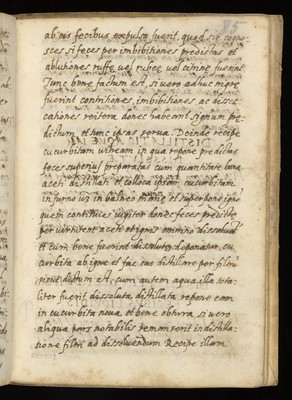 95
ab eis fecibus expulsa fuerit, quod sic cogno-
sces si feces per imbibitiones predictas et
ablutiones ruffe vel rubee vel citrine fuerint
Tunc bene factum est si vero adhuc nigre
fuerint contritiones imbibitiones ac desicc-
cationes reitera donec habeant signum pre-
dictum et tunc ipsas serva. Deinde recipe
cucurbitam vitream in qua repone predictas
feces superius preparatas cum quantitate bona
aceti distillati et colloca ipsam cucurbitam
in furno vz in balneo marie et superpone igne
quem continues iugiter donec feces predicte
per virtutem aceti et ignis omnino dissolvat
et cum bene fuerint dissolute deponatur cu-
curbita ab igne et fac eas distillare per filtru
sicut dictum est, cum autem aqua illa tota-
liter fuerit dissoluta, distillata repone eam
in cucurbita nova et bene obtura, si vero
aliqua pars notabilis remanserit in distilla-
tione filtri ad dissolvendum Recipe illam